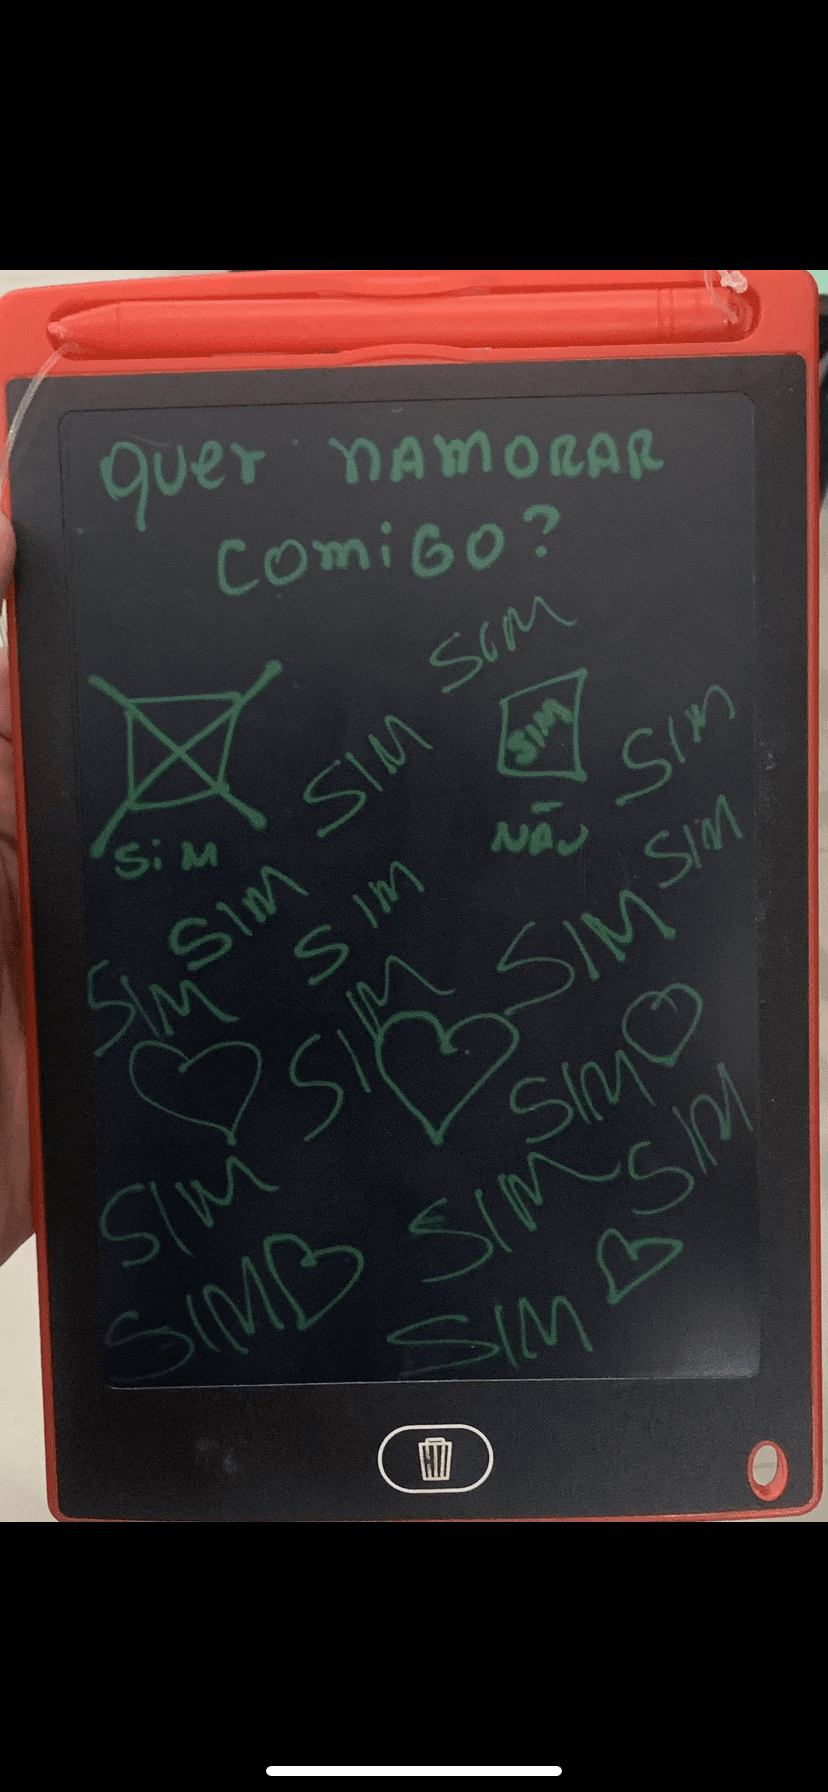 Quer NAMORAR
COMiGO?
SIM
SIM
SIM
SIM
SiM
NÃO
SIM
SIM
SIM
SIM
SIM
SIM
SIM
SIM
SIM
SIM
SIM
SIM
SIM